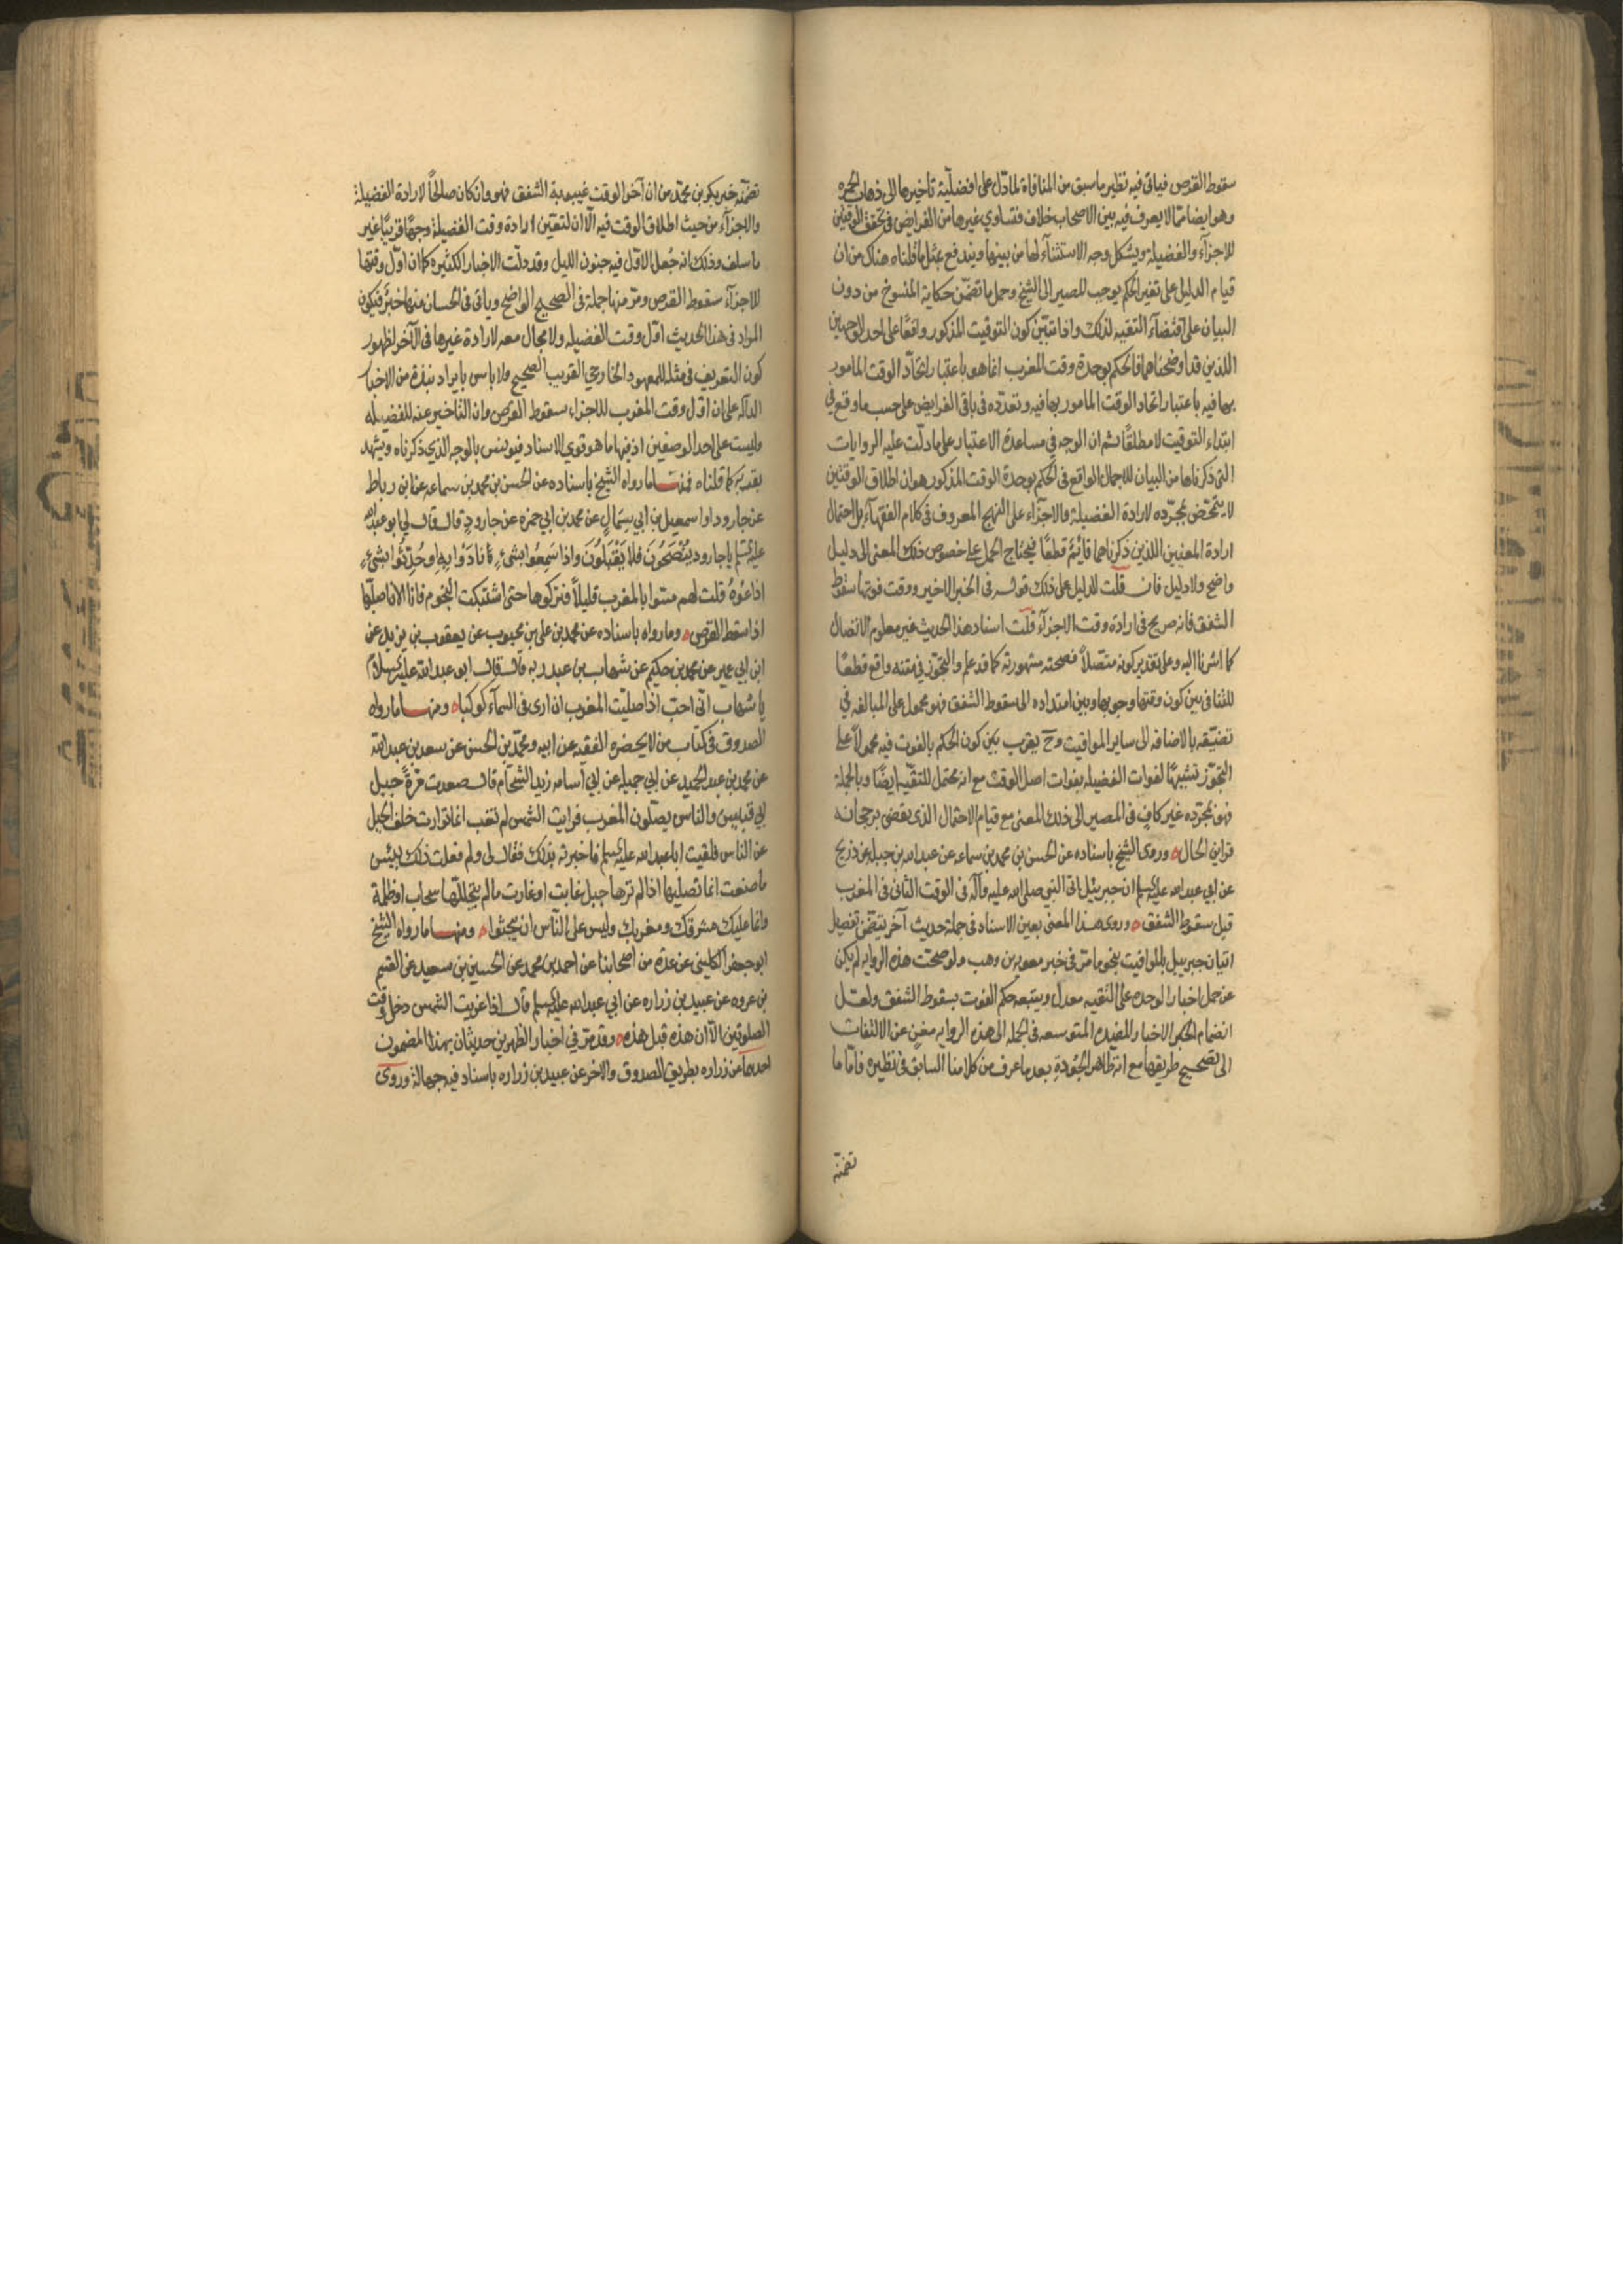 سقوط القرص فياتى فيه نظير ما سبق من المنافاة لما دل على افضلية تاخيرها الى ذهاب الحمرة
وهو ايضا مما لا يعرف فيه بين الاصحاب خلاف فتساوي غيرها من الفرايض فى تحقق الوقتين
للاجزآء والفضيلة ويشكل وجه الاستثنآء لها من بينها ويندفع بمثل ما قلناه هناك من ان
قيام الدليل على تغير الحكم يوجب المصير الى الشيخ وحمل ما تضمن حكاية المنسوخ من دون
البيان على اقتضآء التقيه لذلك واذا تبين كون التوقيت المذكور واقعًا على احد الوجهين
اللذين قد اوضحناهما فالحكم بوحدة وقت المغرب انما هو باعتبار اتحاد الوقت المامور
بها فيه باعتبار اتحاد الوقت المامور بها فيه وتعدده فى باقى الفرايض على حسب ما وقع فى
ابتداء التوقيت لا مطلقًا ثم ان الوجه فى مساعدة الاعتبار على ما دلت عليه الروايات
التى ذكرناها من البيان للاجمال الواقع فى الحكم بوحدة الوقت المذكور هو ان اطلاق الوقتين
لا يتمحض بمجرده لارادة الفضيلة والاجزآء على النهج المعروف فى كلام الفقهآء بل احتمال
ارادة المعنيين اللذين ذكرناهما قائم قطعًا فيحتاج الحمل على خصوص ذلك المعنى الى دليل
واضح ولا دليل فان قلت الدليل على ذلك قوله فى الخبر الاخير ووقت فوتها سقوط
الشفق فانه صريح فى ارادة وقت الاجزآء قلت اسناد هذا الحديث غير معلوم الاتصال
كما اشرنا اليه وعلى تقدير كونه متصلاً فصحته مشهورته كما قد علم والتجوز فى متنه واقع قطعًا
للتنافى بين كون وقتها وجوبها وبين امتداده الى سقوط الشفق فهو محمول على المبالغه فى
تضيقه بالاضافه الى ساير المواقيت وح يقرب بين كون الحكم بالفوت فيه محمولاً على
التجوز تشبيهًا لفوات الفضيله بفوات اصل الوقت مع انه محتمل للتقيه ايضًا وبالجملة
فهو بمجرده غير كاف فى المصير الى ذلك المعنى مع قيام الاحتمال الذى يقضى برجحانه
قراين الحال وروى الشيخ باسناده عن الحسن بن محمد بن سماعه عن عبد الله بن جبله عن ذريح
عن ابي عبد الله عليه السلم ان جبرئيل اتى النبى صلى الله عليه وآله فى الوقت الثانى فى المغرب
قبل سقوط الشفق وروى هذا المعنى بعين الاسناد فى جملة حديث آخر يتضمن تفصيل
اتيان جبرئيل بالمواقيت بنحو ما مر فى خبر معوية بن وهب ولو صحت هذه الروايه لم يكن
عن حمل اخبار الوحده على التقيه معدل ويتبعه حكم الفوت بسقوط الشفق ولعل
انضمام الخبر الاخبار المفيده المتوسعه فى الجمله الى هذه الروايه مغن عن الالتفات
الى تصحيح طريقها مع انه ظاهر الجودة بعد ما عرف من كلامنا السابق فى نظيره فاما ما
تضمنه
تضمنه خبر بكر بن محمد من ان آخر الوقت غيبوبة الشفق فهو وان كان صالحًا لارادة الفضيلة
والاجزآء من حيث اطلاق الوقت فيه الا ان لتعين ارادة وقت الفضيلة وجهًا قريبًا غير
ما سلف وذلك انه جعل الاول فيه جنون الليل وقد دلت الاخبار الكثيره كما ان اول وقتها
للاجزآء سقوط القرص ومر منها جملة فى الصحيح الواضح وياتى فى الحسان منها خبر فيكون
المراد فى هذا الحديث اول وقت الفضيله ولا مجال معه لارادة غيرها فى الآخر لظهور
كون التعريف فى مثله للمعهود الخارجي القريب الصحيح ولا باس بايراد نبذة من الاخبار
الدالة على ان اول وقت المغرب للاجزاء سقوط القرص وان التاخير عنه للفضيله
وليست على احد الوصفين اذ فيها ما هو قوي الاسناد فيونس بالوجه الذى ذكرناه ويشهد
بقدر كما قلناه فمنها ما رواه الشيخ باسناده عن الحسن بن محمد بن سماعه عن ابن رباط
عن جارود او اسمعيل بن ابي سمال عن محمد بن ابي حمزه عن جارود قال قال لي ابو عبد الله
عليه السلم يا جارود ينصحون فلا يقبلون واذا سمعوا بشيء نادوا به او حدثوا بشيء
اذاعوه قلت لهم مسوا بالمغرب قليلاً فتركوها حتى اشتبكت النجوم فانا الان اصليها
اذا سقط القرص وما رواه باسناده عن محمد بن على بن محبوب عن يعقوب بن يزيد عن
ابن ابي عمير عن محمد بن حكيم عن شهاب بن عبد ربه قال قال ابو عبد الله عليه السلام
يا شهاب انى احب اذا صليت المغرب ان ارى فى السمآء كوكبا ومنها ما رواه
الصدوق فى كتاب من لا يحضره الفقيه عن ابيه ومحمد بن الحسن عن سعد بن عبد الله
عن محمد بن عبد الحميد عن ابي جميله عن ابي اسامه زيد الشحام قال صعدت مرة جبل
ابي قبيس والناس يصلون المغرب فرايت الشمس لم تغب انما توارت خلف الجبل
عن الناس فلقيت ابا عبد الله عليه السلم فاخبرته بذلك فقال لى ولم فعلت ذلك بئس
ما صنعت انما تصليها اذا لم ترها جبل غابت او غارت ما لم يتجللها سحاب او ظلمة
وانما عليك مشرقك ومغربك وليس على الناس ان يبحثوا ومنها ما رواه الشيخ
ابو جعفر الكليني عن عدة من اصحابنا عن احمد بن محمد عن الحسين بن سعيد عن القسم
بن عروه عن عبيد بن زراره عن ابي عبد الله عليه السلم قال اذا غربت الشمس دخل وقت
الصلوتين الا ان هذه قبل هذه وقد مر فى اخبار الظهرين حديثان بهذا المضمون
احدهما عن زراره بطريق الصدوق والاخر عن عبيد بن زراره باسناد فيه جهالة وروى